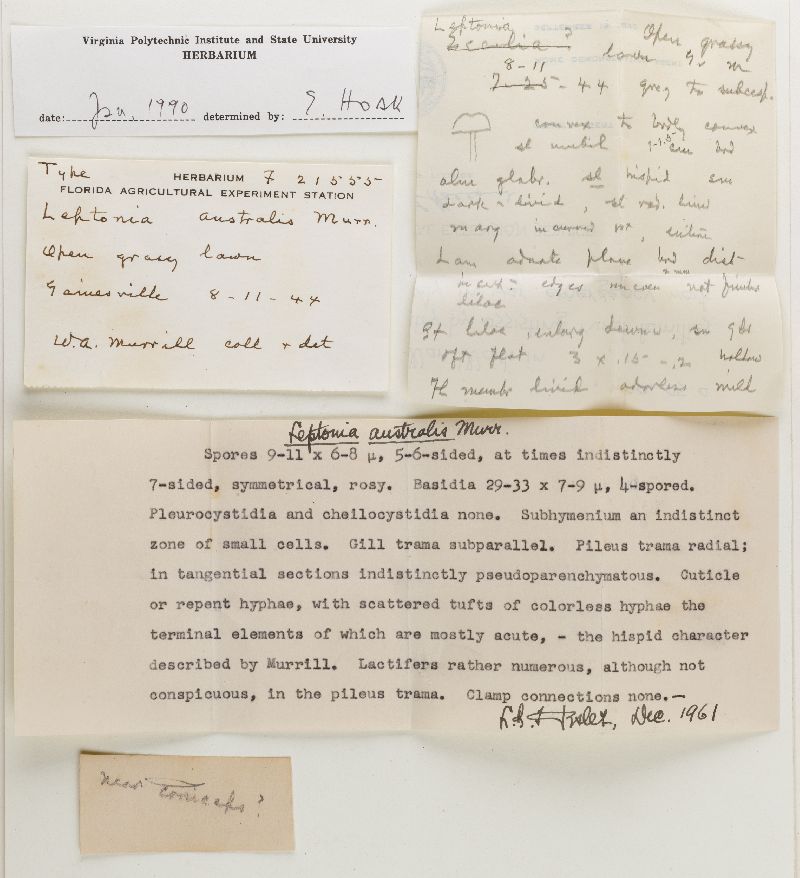 Virginia Polytechnic Institute and State University
HERBARIUM
date: Jan. 1990 determined by:
Type HERBARIUM F 21555
FLORIDA AGRICULTURAL EXPERIMENT STATION
Leptonia australis Murr.
Open grassy lawn
Gainesville 8-11-44
W.A. Murrill coll + det
Leptonia
Eccilia ? Open grassy
8-11 lawn G. M
7-25-44 greg to subcesp.
convex to brdly convex
sl umbil cm brd
glabr. sl hispid cen
dark - livid, sl rad. lined
marg incurved entire
Lam adnate plane brd dist
edges uneven not fimbr
lilac
St lilac, enlarg downw, sm glbr
oft flat 3 x .15-.2 hollow
Fl membr livid odorless mild
Leptonia australis Murr.
Spores 9-11 x 6-8 µ, 5-6-sided, at times indistinctly
7-sided, symmetrical, rosy. Basidia 29-33 x 7-9 µ, 4-spored.
Pleurocystidia and cheilocystidia none. Subhymenium an indistinct
zone of small cells. Gill trama subparallel. Pileus trama radial;
in tangential sections indistinctly pseudoparenchymatous. Cuticle
or repent hyphae, with scattered tufts of colorless hyphae the
terminal elements of which are mostly acute, - the hispid character
described by Murrill. Lactifers rather numerous, although not
conspicuous, in the pileus trama. Clamp connections none.-
Dec. 1961
near coniceps?